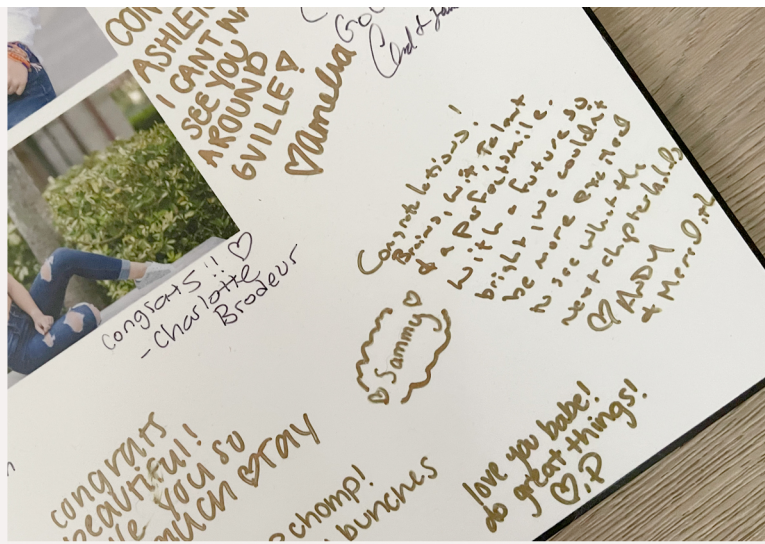 CON
ASHLE
I CAN'T W
SEE YOU
AROUND
GVILLE!
♡Amelia
Go
congrats!! ♡
-Charlotte
Brodeur
Congratulations!
Brains, wit, talent
& a perfect smile.
With a future so
bright, we couldn't
be more excited
to see what the
next chapter holds
♡ ANDY
& Meredith
♡ Sammy ♡
congrats
beautiful!
ve you so
much ♡ Tay
chomp!
bunches
love you babe!
do great things!
♡, P